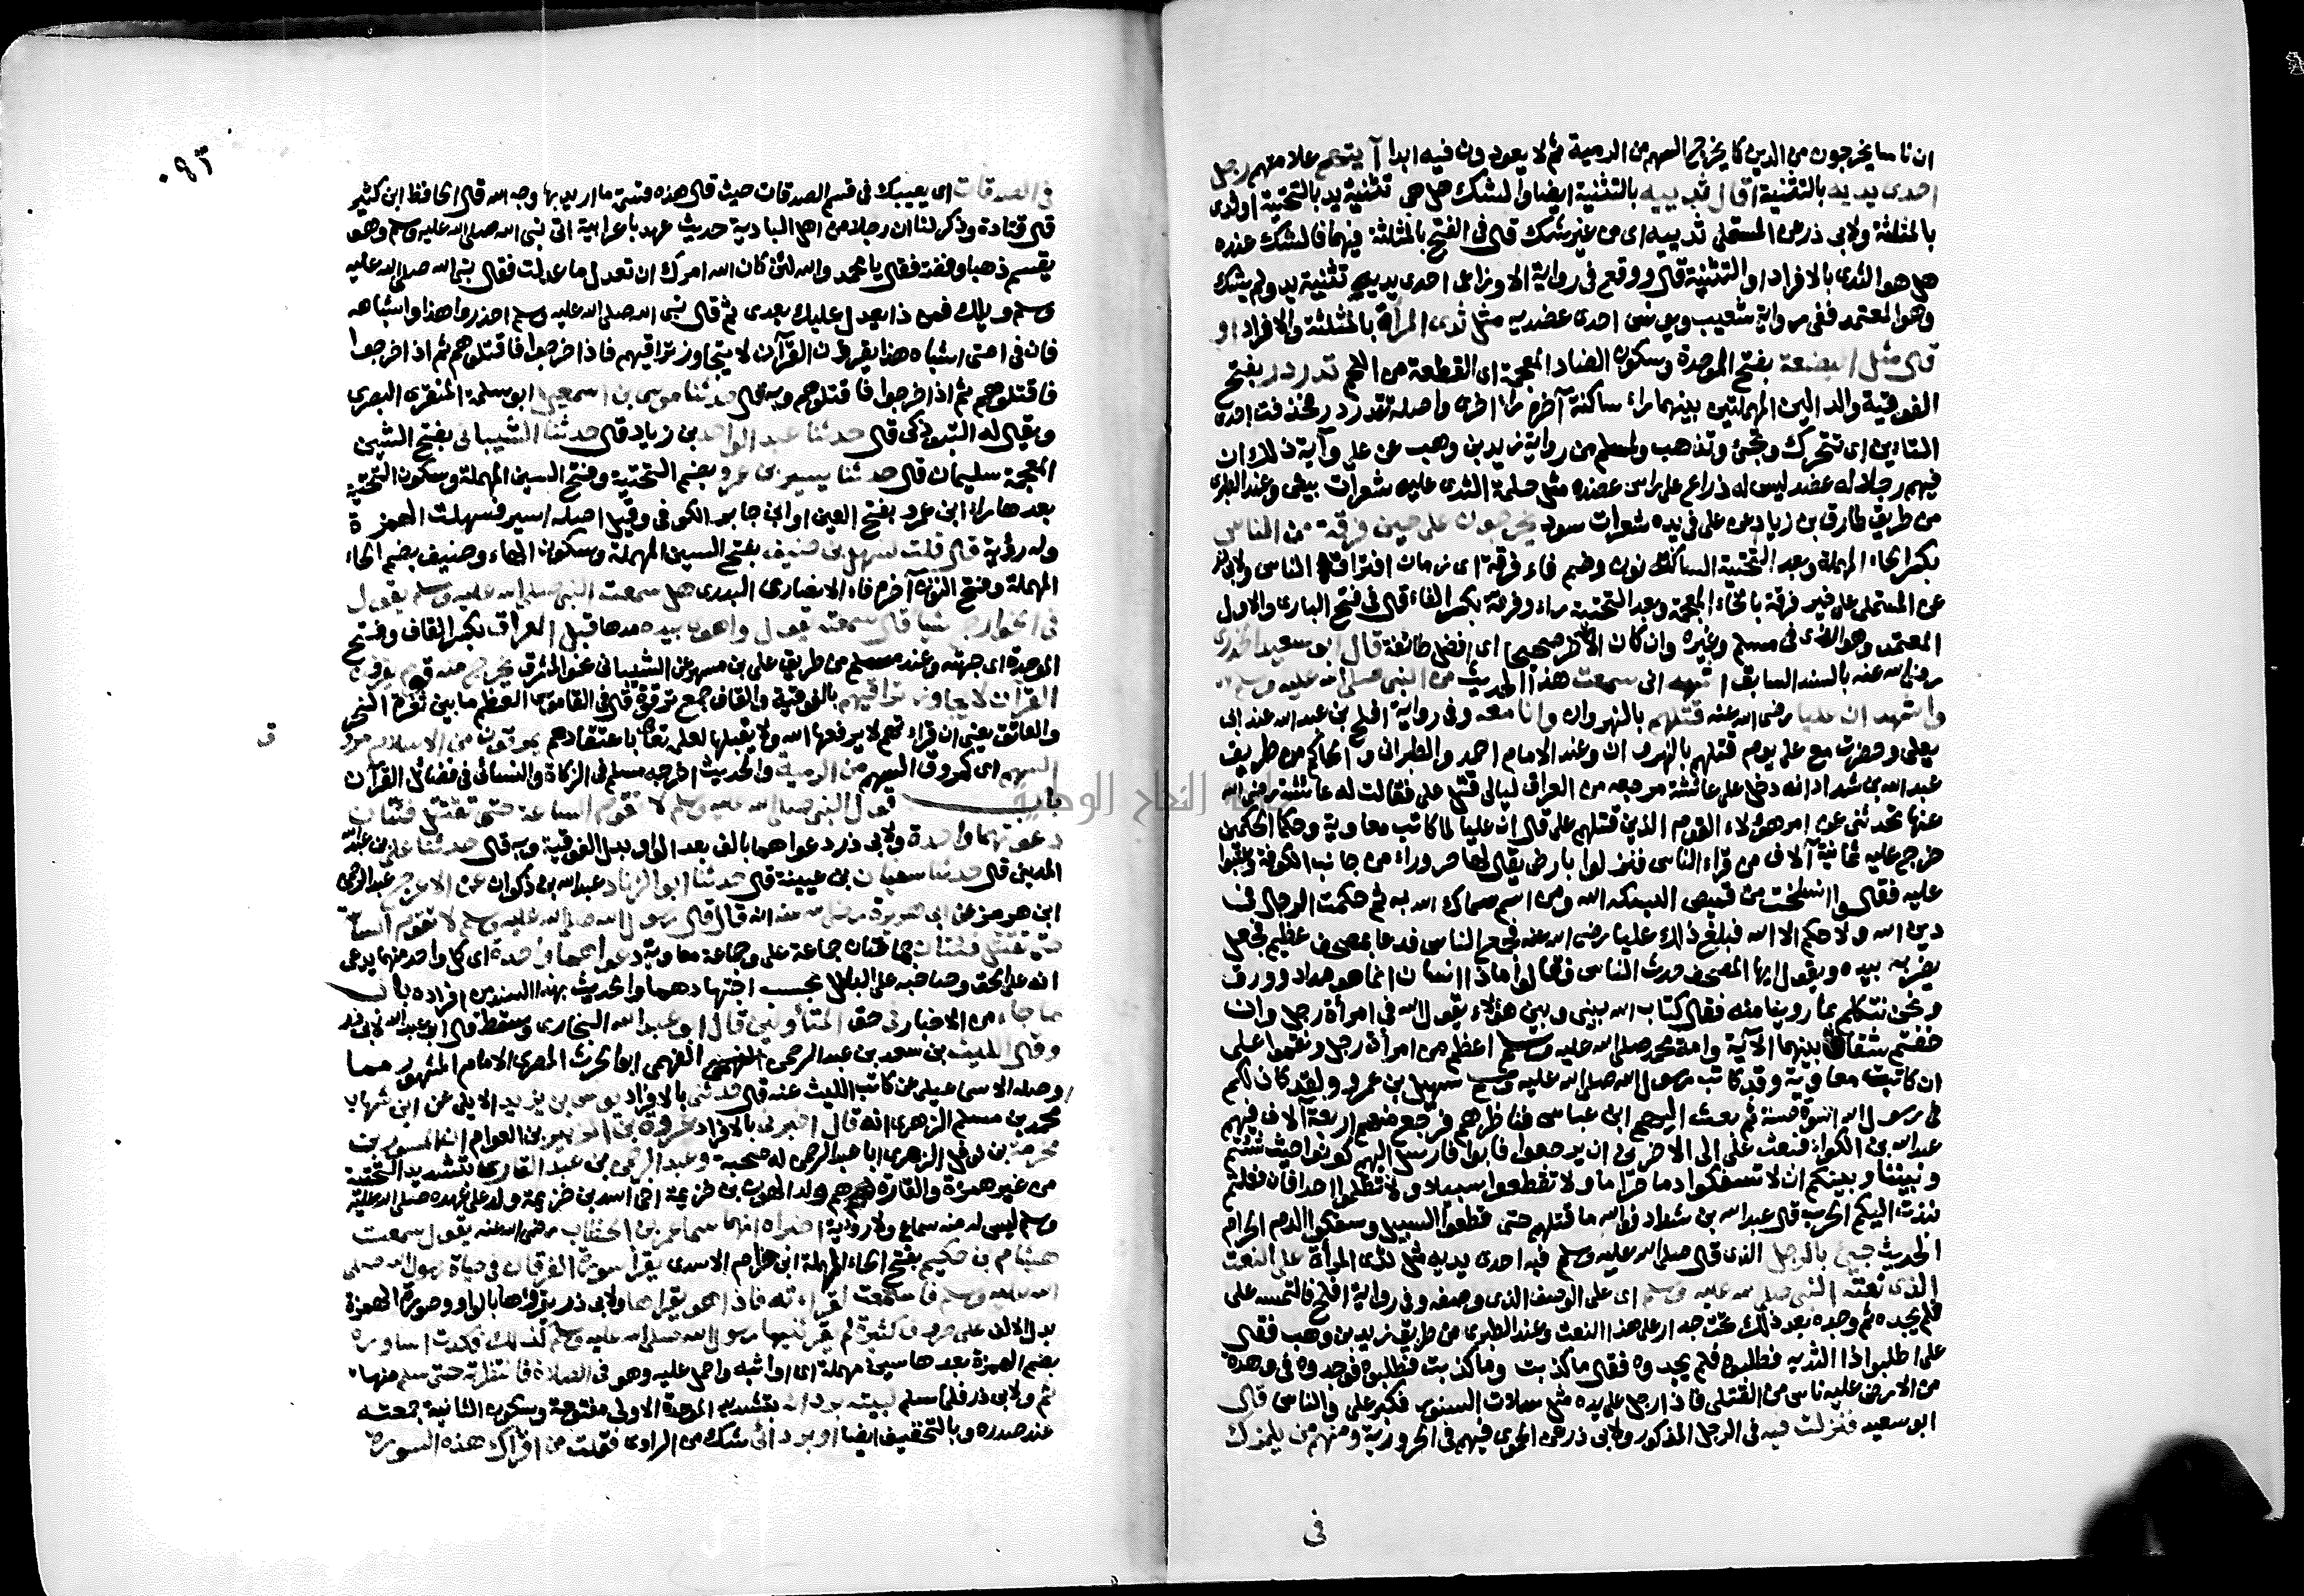 ان ناسا يخرجون من الدين كما يخرج السهم من الرمية ثم لا يعودون فيه ابدا آيتهم علامتهم رجل
احدى يديه بالتثنية او قال ثدييه بالتثنية ايضا والشك هل هى تثنية يد بالتحتية او ثدى
بالمثلثة ولابى ذر عن المستملى ثدييه اى من غير شك قال فى الفتح بالمثلثة فيهما فالشك عنده
هل هو الثدى بالافراد او التثنية قال ووقع فى رواية الاوزاعى احدى يديه تثنية يد ولم يشك
وهو المعتمد ففى رواية شعيب ويونس احدى عضديه مثل ثدى المرأة بالمثلثة والافراد او
قال مثل البضعة بفتح الموحدة وسكون الضاد المعجمة اى القطعة من اللحم تدردر بفتح
الفوقية والدالين المهملتين بينهما راء ساكنة آخره راء اخرى واصله تتدردر فحذفت احدى
التاءين اى تتحرك وتجئ وتذهب ولمسلم من رواية زيد بن وهب عن على وآية ذلك ان
فيهم رجلا له عضد ليس له ذراع على راس عضده مثل حلمة الثدى عليه شعرات بيض وعند الطبرى
من طريق طارق بن زياد عن على فى يده شعرات سود يخرجون على حين فرقة من الناس
بكسر الحاء المهملة وبعد التحتية الساكنة نون وضم فاء فرقة اى زمان افتراق الناس ولابى ذر
عن المستملى على خير فرقة بالخاء المعجمة وبعد التحتية راء وفرقة بكسر الفاء قال فى فتح البارى والاول
المعتمد وهو الذى فى مسلم وغيره وان كان الآخر صحيحا اى افضل طائفة قال ابو سعيد الخدرى
رضى الله عنه بالسند السابق اشهد انى سمعت هذا الحديث من النبى صلى الله عليه وسلم
واشهد ان عليا رضى الله عنه قتلهم بالنهروان وانا معه وفى رواية افلح بن عبد الله عند ابى
يعلى وحضرت مع على يوم قتلهم بالنهروان وعند الامام احمد والطبرانى والحاكم من طريق
عبد الله بن شداد انه دخل على عائشة مرجعه من العراق ليالى قتل على فقالت له عائشة رضى الله
عنها تحدثنى عن امر هؤلاء القوم الذين قتلهم على قال ان عليا لما كاتب معاوية وحكما الحكمين
خرج عليه ثمانية آلاف من قراء الناس فنزلوا بارض يقال لها حروراء من جانب الكوفة وعتبوا
عليه فقالوا انسلخت من قميص البسكه الله ومن اسم سماك الله به ثم حكمت الرجال فى
دين الله ولا حكم الا لله فبلغ ذلك عليا رضى الله عنه فجمع الناس فدعا بمصحف عظيم فجعل
يضربه بيده ويقول ايها المصحف حدث الناس فقالوا ماذا انسان انما هو مداد وورق
ونحن نتكلم بما روينا منه فقال كتاب الله بينى وبين هؤلاء يقول الله فى امرأة رجل وان
خفتم شقاق بينهما الآية وامة محمد صلى الله عليه وسلم اعظم من امرأة رجل ونقموا على
ان كاتبت معاوية وقد كاتب رسول الله صلى الله عليه وسلم سهيل بن عمرو ولقد كان لكم
فى رسول الله اسوة حسنة ثم بعث اليهم ابن عباس فناظرهم فرجع منهم اربعة آلاف فيهم
عبد الله بن الكواء فبعث على الى الاخرين ان يرجعوا فابوا فارسل اليهم كونوا حيث شئتم
وبيننا وبينكم ان لا تسفكوا دما حراما ولا تقطعوا سبيلا ولا تظلموا احدا فان فعلتم
نبذت اليكم الحرب قال عبد الله بن شداد فوالله ما قتلهم حتى قطعوا السبيل وسفكوا الدم الحرام
الحديث جيئ بالرجل الذى قال صلى الله عليه وسلم فيه احدى يديه مثل ثدى المرأة على النعت
الذى نعته النبى صلى الله عليه وسلم اى على الوصف الذى وصفه وفى رواية افلح فالتمسه على
فلم يجده ثم وجده بعد ذلك تحت جدار على هذا النعت وعند الطبرى من طريق زيد بن وهب فقال
على اطلبوا ذا الثدية فطلبوه فلم يجدوه فقال ما كذبت وما كذبت فطلبوه فوجدوه فى وهدة
من الارض عليه ناس من القتلى فاذا رجل على يده مثل سبلات السنور فكبر على والناس قال
ابو سعيد فنزلت فيه فى الرجل المذكور ولابى ذر عن الحموى فيهم فى الحرورية ومنهم من يلمزك
فى
فى الصدقات اى يعيبك فى قسم الصدقات حيث قال هذه قسمة ما اريد بها وجه الله قال الحافظ ابن كثير
قال قتادة وذكر لنا ان رجلا من اهل البادية حديث عهد باعرابية اتى نبى الله صلى الله عليه وسلم وهو
يقسم ذهبا وفضة فقال يا محمد والله لئن كان الله امرك ان تعدل ما عدلت فقال نبى الله صلى الله عليه
وسلم ويلك فمن ذا يعدل عليك بعدى ثم قال نبى الله صلى الله عليه وسلم احذروا هذا واشباهه
فان فى امتى اشباه هذا يقرؤن القرآن لا يتجاوز تراقيهم فاذا خرجوا فاقتلوهم ثم اذا خرجوا
فاقتلوهم ثم اذا خرجوا فاقتلوهم وبه قال حدثنا موسى بن اسمعيل ابو سلمة المنقرى البصرى
ويقال له التبوذكى قال حدثنا عبد الواحد بن زياد قال حدثنا الشيبانى بفتح الشين
المعجمة سليمان قال حدثنا يسير بن عمرو بضم التحتية وفتح السين المهملة وسكون التحتية
بعدها راء ابن عمرو بفتح العين او ابن جابر الكوفى وقيل اصله اسير فسهلت الهمزة
وله رؤية قال قلت لسهل بن حنيف بفتح السين المهملة وسكون الهاء وحنيف بضم الحاء
المهملة وفتح النون آخره فاء الانصارى البدرى هل سمعت النبى صلى الله عليه وسلم يقول
فى الخوارج شيئا قال سمعته يقول واهوى بيده مدها قبل العراق بكسر القاف وفتح
الموحدة اى جهته وعند مسلم من طريق على بن مسهر عن الشيبانى نحو المشرق يخرج منه قوم يقرؤن
القرآن لا يجاوز تراقيهم بالفوقية والقاف جمع ترقوة قال فى القاموس العظم ما بين ثغرة النحر
والعاتق يعنى ان قراءتهم لا يرفعها الله ولا يقبلها لعلمه تعالى باعتقادهم يمرقون من الاسلام مروق
ق
السهم اى كمروق السهم من الرمية والحديث اخرجه مسلم فى الزكاة والنسائى فى فضائل القرآن
باب قول النبى صلى الله عليه وسلم لا تقوم الساعة حتى تقتتل فئتان
دعوتهما واحدة ولابى ذر دعواهما بالف بعد الواو بدل الفوقية وبه قال حدثنا على بن عبد الله
المدينى قال حدثنا سفيان بن عيينة قال حدثنا ابو الزناد عبد الله بن ذكوان عن الاعرج عبد الرحمن
ابن هرمز عن ابى هريرة رضى الله عنه انه قال قال رسول الله صلى الله عليه وسلم لا تقوم الساعة
حتى تقتتل فئتان هما فئتان جماعة على وجماعة معاوية دعواهما واحدة اى كل واحد منهما يدعى
انه على الحق وصاحبه على الباطل بحسب اجتهادهما والحديث بهذا السند من افراده باب
ما جاء من الاخبار فى حق المتأولين قال ابو عبد الله البخارى وسقط قال ابو عبد الله لابى ذر
وقال الليث بن سعد بن عبد الرحمن الفهمى ابو الحرث المصرى الامام المشهور مما
وصله الاسماعيلى عن كاتب الليث عنه قال حدثنى بالافراد يونس بن يزيد الايلى عن ابن شهاب
محمد بن مسلم الزهرى انه قال اخبرنى بالافراد عروة بن الزبير بن العوام ان المسور بن
مخرمة بن نوفل الزهرى ابا عبد الرحمن له صحبة وعبد الرحمن بن عبد القارى بتشديد التحتية
من غير همزة والقارة هم ولد الهون بن خزيمة اخى اسد بن خزيمة ولد على عهده صلى الله عليه
وسلم ليس له منه سماع ولا رؤية اخبراه انهما سمعا عمر بن الخطاب رضى الله عنه يقول سمعت
هشام بن حكيم بفتح الحاء المهملة ابن حزام الاسدى يقرأ سورة الفرقان فى حياة رسول الله صلى
الله عليه وسلم فاستمعت لقراءته فاذا هو يقراها ولابى ذر يقرؤها بالواو وصورة الهمزة
بدل الالف على حروف كثيرة لم يقرئنيها رسول الله صلى الله عليه وسلم كذلك فكدت اساوره
بضم الهمزة بعدها سين مهملة اى اواثبه واحمل عليه وهو فى الصلاة فانتظرته حتى سلم منها
ثم ولابى ذر فلما سلم لببته بردائه بتشديد الموحدة الاولى مفتوحة وسكون الثانية جمعته
عند صدره وبالتخفيف ايضا او بردائى شك من الراوى فقلت من اقرأك هذه السورة